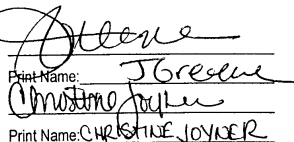 Print Name: J Greene
Christine Joyner
Print Name: CHRISTINE JOYNER